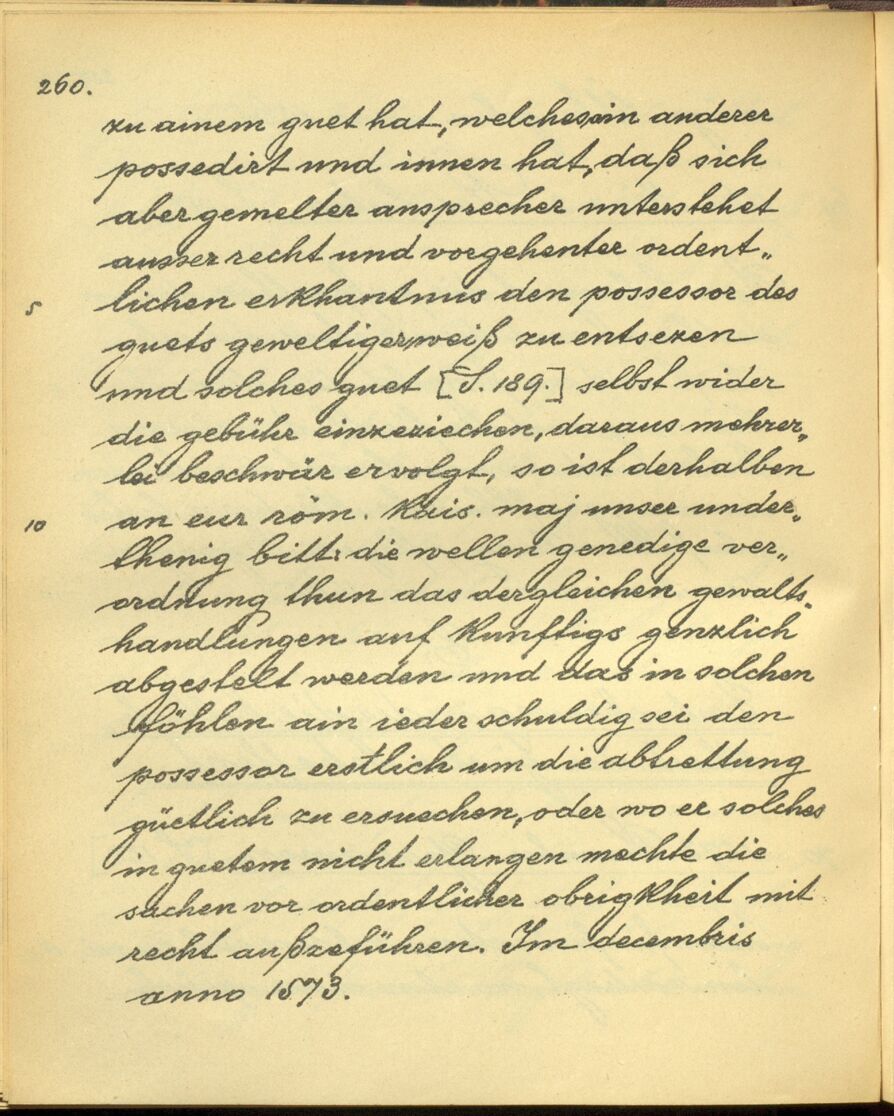 260.
zu ainem guet hat, welches ain anderer
possedirt und innen hat, daß sich
aber gemelter ansprecher unterstehet
ausser recht und vorgehenter ordent„
5 lichen erkhantnus den possessor des
guets geweltigerweiß zu entsezen
und solches guet [S. 189.] selbst wider
die gebühr einzeziechen, daraus mehrer„
lei beschwär ervolgt, so ist derhalben
10 an eur röm. Kais. maj unser under„
thenig bitt: die wellen genedige ver„
ordnung thun das dergleichen gewalts„
handlungen auf kunftigs genzlich
abgestelt werden und das in solchen
föhlen ain ieder schuldig sei den
possessor erstlich um die abtrettung
güetlich zu ersuechen, oder wo er solches
in guetem nicht erlangen mechte die
sachen vor ordentlicher obrigkheit mit
recht außzeführen. Im decembris
anno 1573.